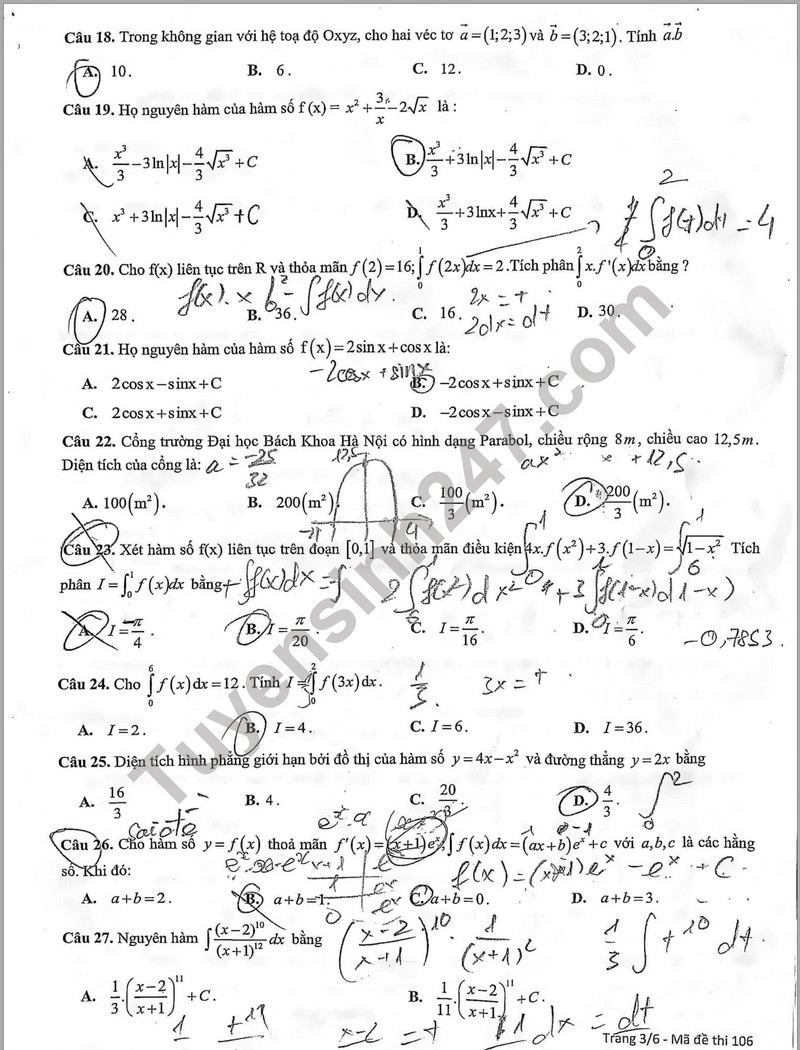 Câu 18. Trong không gian với hệ toạ độ Oxyz, cho hai véc tơ a⃗ = (1;2;3) và b⃗ = (3;2;1). Tính a⃗.b⃗
A. 10. B. 6. C. 12. D. 0.
Câu 19. Họ nguyên hàm của hàm số f(x) = x² + 3/x − 2√x là :
A. x³/3 − 3ln|x| − 4/3 √x³ + C B. x³/3 + 3ln|x| − 4/3 √x³ + C
C. x³ + 3ln|x| − 4/3 √x³ + C D. x³/3 + 3lnx + 4/3 √x³ + C
2
∫f(t)dt = 4
0
Câu 20. Cho f(x) liên tục trên R và thỏa mãn f(2) = 16; ∫₀¹ f(2x)dx = 2. Tích phân ∫₀² x.f'(x)dx bằng ?
f(x).x − ∫f(x)dx. 2x = t
A. 28. B. 36. C. 16. D. 30.
2dx = dt
Câu 21. Họ nguyên hàm của hàm số f(x) = 2sin x + cos x là:
−2cosx + sinx
A. 2cos x − sinx + C B. −2cos x + sinx + C
C. 2cos x + sinx + C D. −2cos x − sinx + C
Câu 22. Cổng trường Đại học Bách Khoa Hà Nội có hình dạng Parabol, chiều rộng 8m, chiều cao 12,5m.
Diện tích của cổng là: a = −25/32 12,5 ax² x + 12,5
A. 100(m²). B. 200(m²). C. 100/3 (m²). D. 200/3 (m²).
−4 4
Câu 23. Xét hàm số f(x) liên tục trên đoạn [0,1] và thỏa mãn điều kiện 4x.f(x²) + 3.f(1−x) = √1−x² Tích
phân I = ∫₀¹ f(x)dx bằng
2∫f(x²)dx² + 3∫f(1−x)d(1−x)
A. I = π/4. B. I = π/20. C. I = π/16. D. I = π/6.
−0,7853.
Câu 24. Cho ∫₀⁶ f(x)dx = 12. Tính I = ∫₀² f(3x)dx. 1/3. 3x = t
A. I = 2. B. I = 4. C. I = 6. D. I = 36.
Câu 25. Diện tích hình phẳng giới hạn bởi đồ thị của hàm số y = 4x − x² và đường thẳng y = 2x bằng
A. 16/3 B. 4. C. 20/3. D. 4/3. ∫₀²
Câu 26. Cho hàm số y = f(x) thoả mãn f'(x) = (x+1)eˣ, ∫f(x)dx = (ax+b)eˣ + c với a,b,c là các hằng
số. Khi đó: f(x) = (x+1)eˣ − eˣ + C
A. a+b = 2. B. a+b = 1. C. a+b = 0. D. a+b = 3.
Câu 27. Nguyên hàm ∫(x−2)¹⁰/(x+1)¹² dx bằng (x−2/x+1)¹⁰ . 1/(x+1)² 1/3 ∫t¹⁰ dt.
A. 1/3.(x−2/x+1)¹¹ + C. B. 1/11.(x−2/x+1)¹¹ + C.
dx = dt
Trang 3/6 - Mã đề thi 106
Tuyensinh247.com